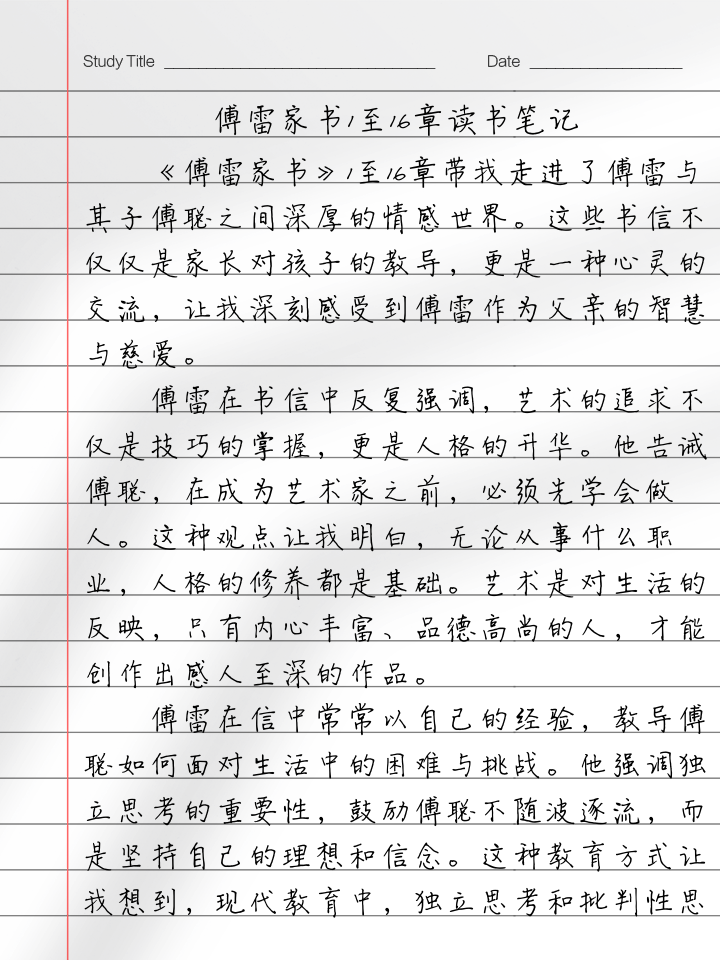 Study Title Date
傅雷家书1至16章读书笔记
《傅雷家书》1至16章带我走进了傅雷与
其子傅聪之间深厚的情感世界。这些书信不
仅仅是家长对孩子的教导，更是一种心灵的
交流，让我深刻感受到傅雷作为父亲的智慧
与慈爱。
傅雷在书信中反复强调，艺术的追求不
仅是技巧的掌握，更是人格的升华。他告诫
傅聪，在成为艺术家之前，必须先学会做
人。这种观点让我明白，无论从事什么职
业，人格的修养都是基础。艺术是对生活的
反映，只有内心丰富、品德高尚的人，才能
创作出感人至深的作品。
傅雷在信中常常以自己的经验，教导傅
聪如何面对生活中的困难与挑战。他强调独
立思考的重要性，鼓励傅聪不随波逐流，而
是坚持自己的理想和信念。这种教育方式让
我想到，现代教育中，独立思考和批判性思